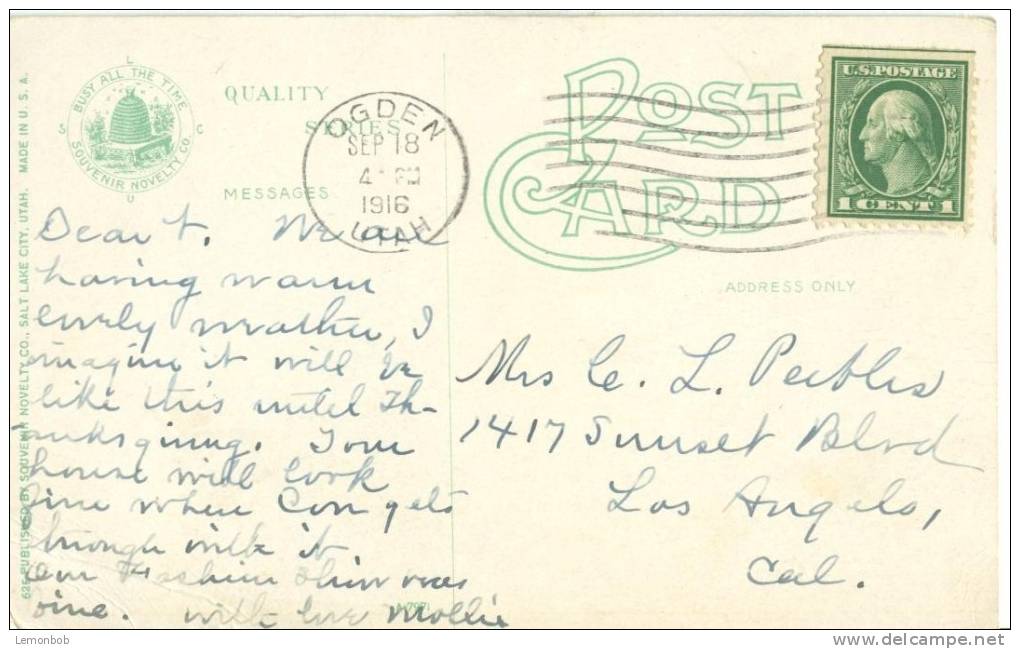 BUSY ALL THE TIME
SOUVENIR NOVELTY CO
L
S
C
U
QUALITY
SERIES
MESSAGES
POST
CARD
ADDRESS ONLY
OGDEN
SEP 18
4 PM
1916
UTAH
U.S. POSTAGE
1 CENT 1
625 PUBLISHED BY SOUVENIR NOVELTY CO., SALT LAKE CITY, UTAH. MADE IN U. S. A.
Dear t. We are
having warm
lovely weather, I
imagine it will be
like this until Th-
anksgiving. Your
house will look
fine when Con gets
through with it.
Our Fashion Show was
fine. With love Mollie
Mrs C. L. Peebles
1417 Sunset Blvd
Los Angeles,
Cal.
Lemonbob
www.delcampe.net